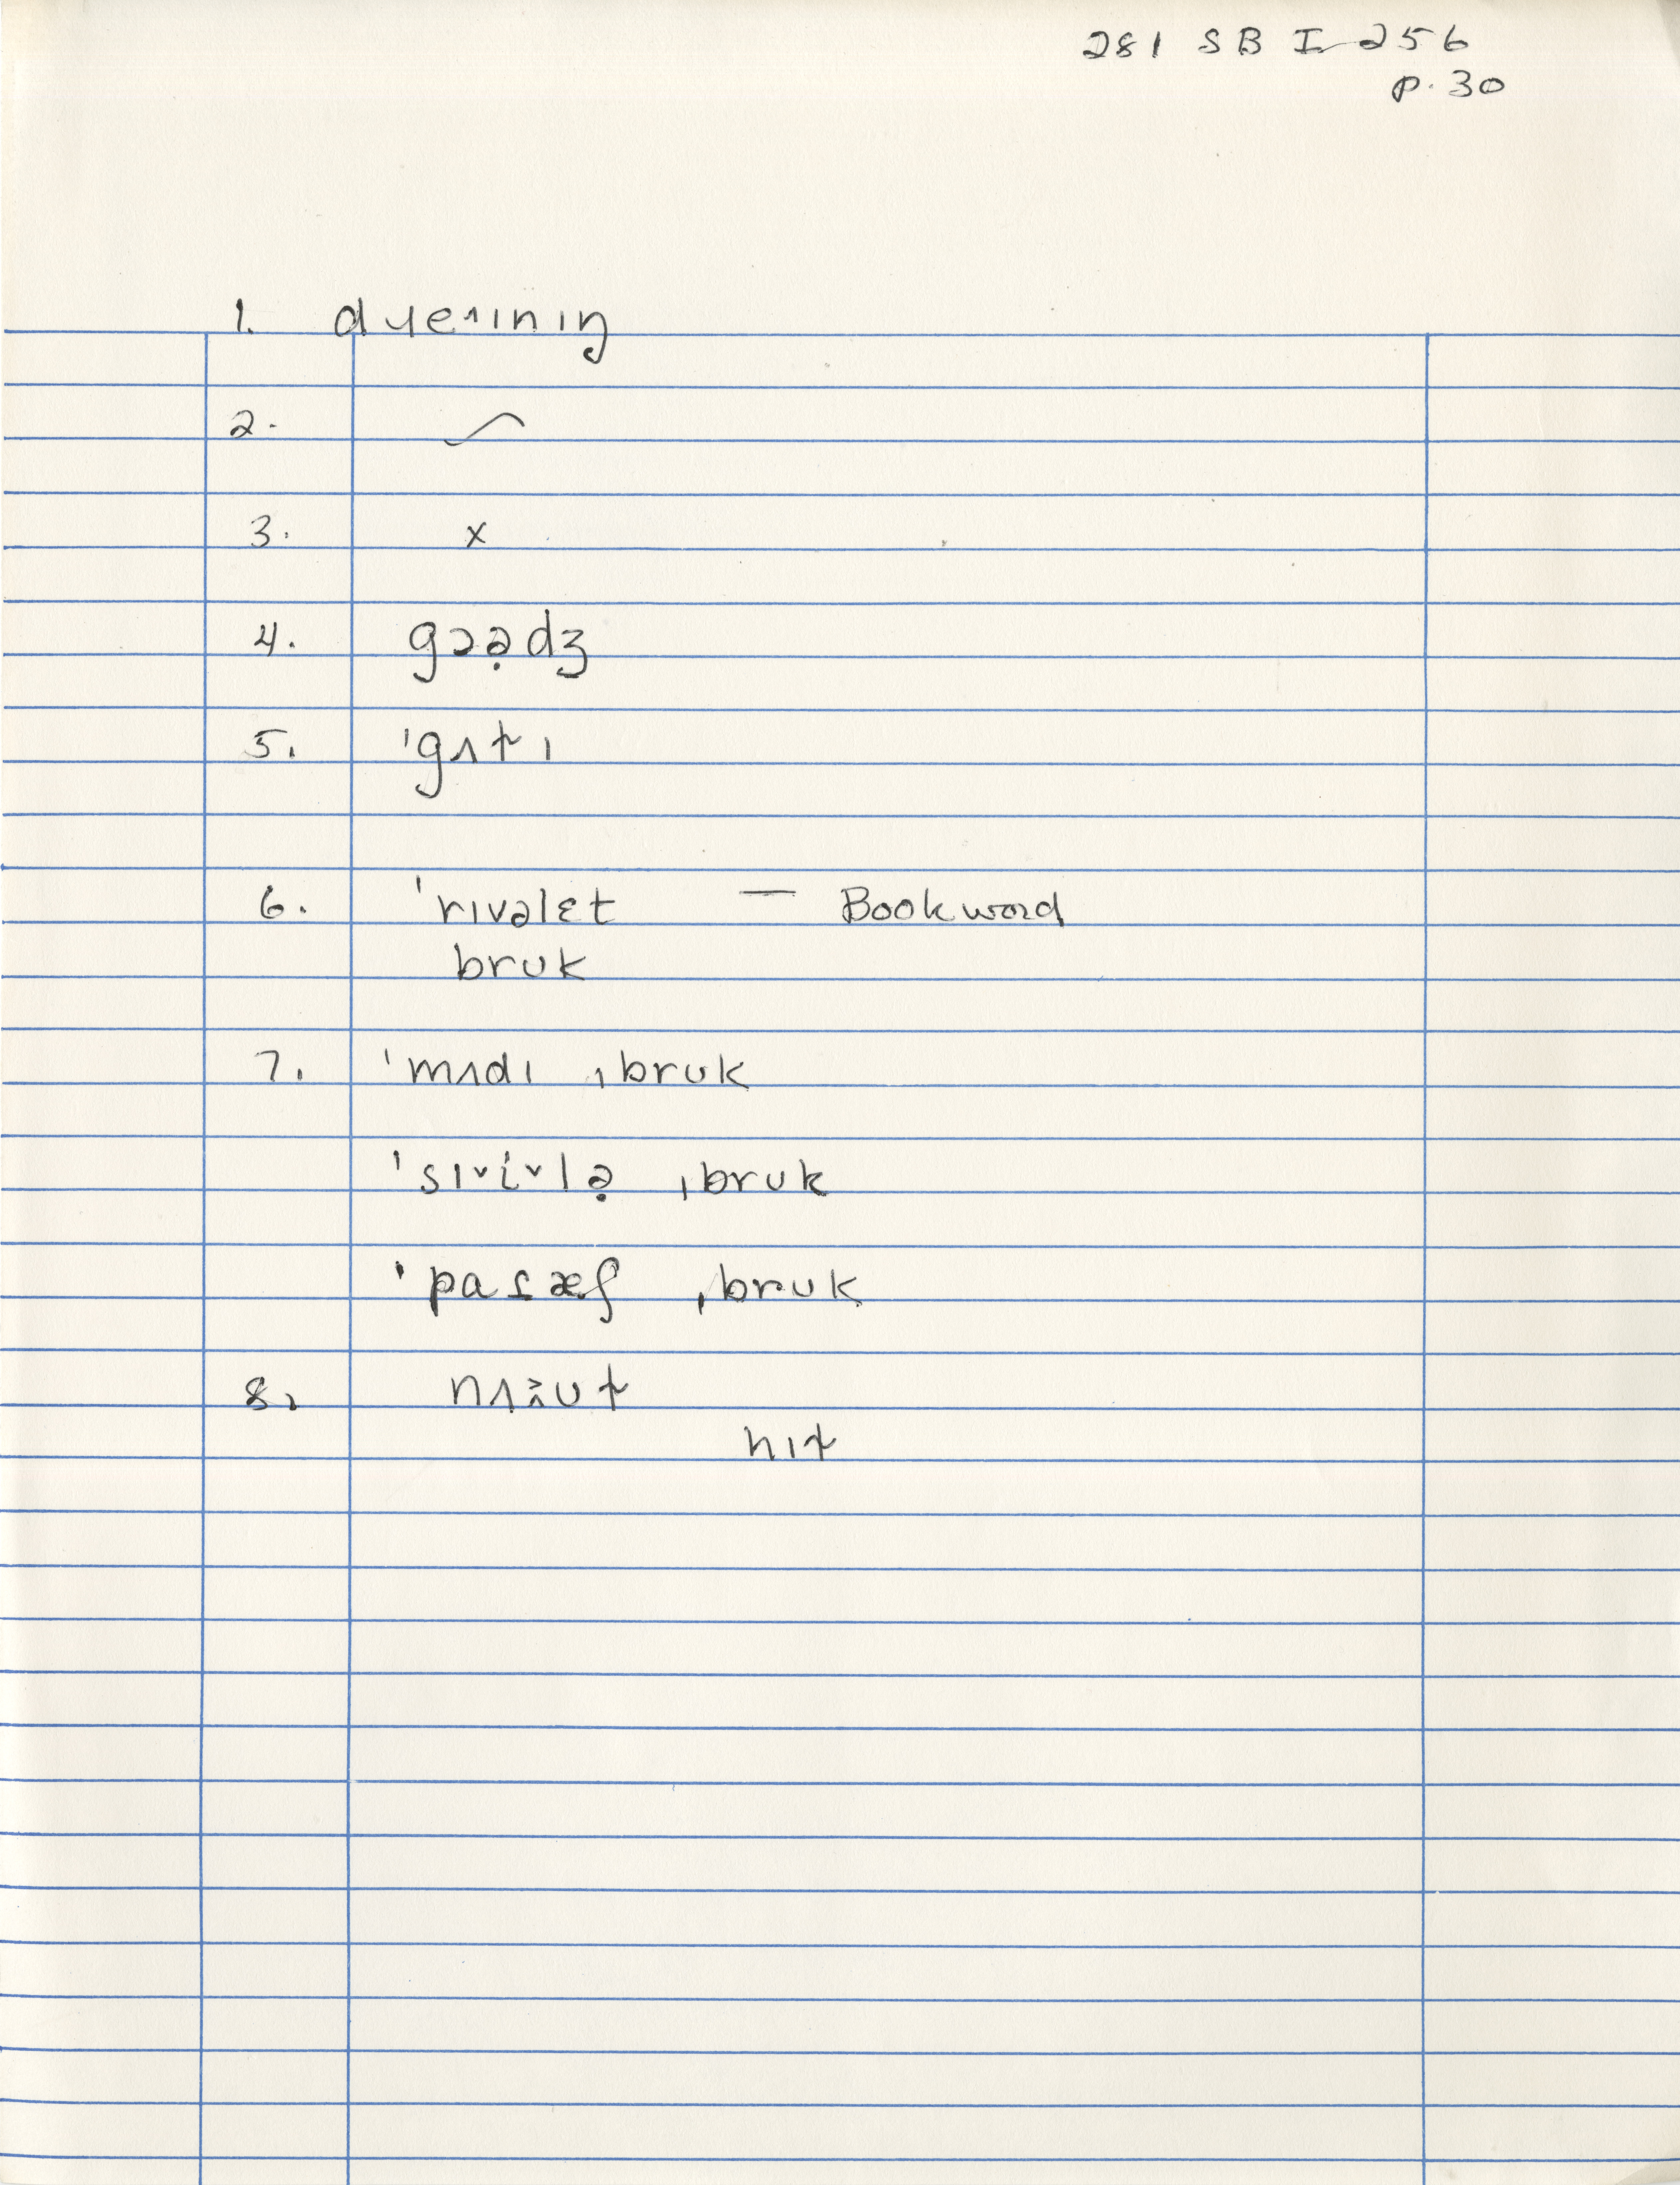 281 SB I 256
p. 30
1. dɥe˔ɪnɪŋ
2. ⁓
3. x
4. gɔə̣dʒ
5. ˈgʌt̬ɪ
6. ˈrɪvəlɛt — Bookword
bruk
7. ˈmʌdɪ ˌbruk
ˈsɪ˅i˅lə̣ ˌbruk
ˈpaɾæʃ ˌbruk
8.